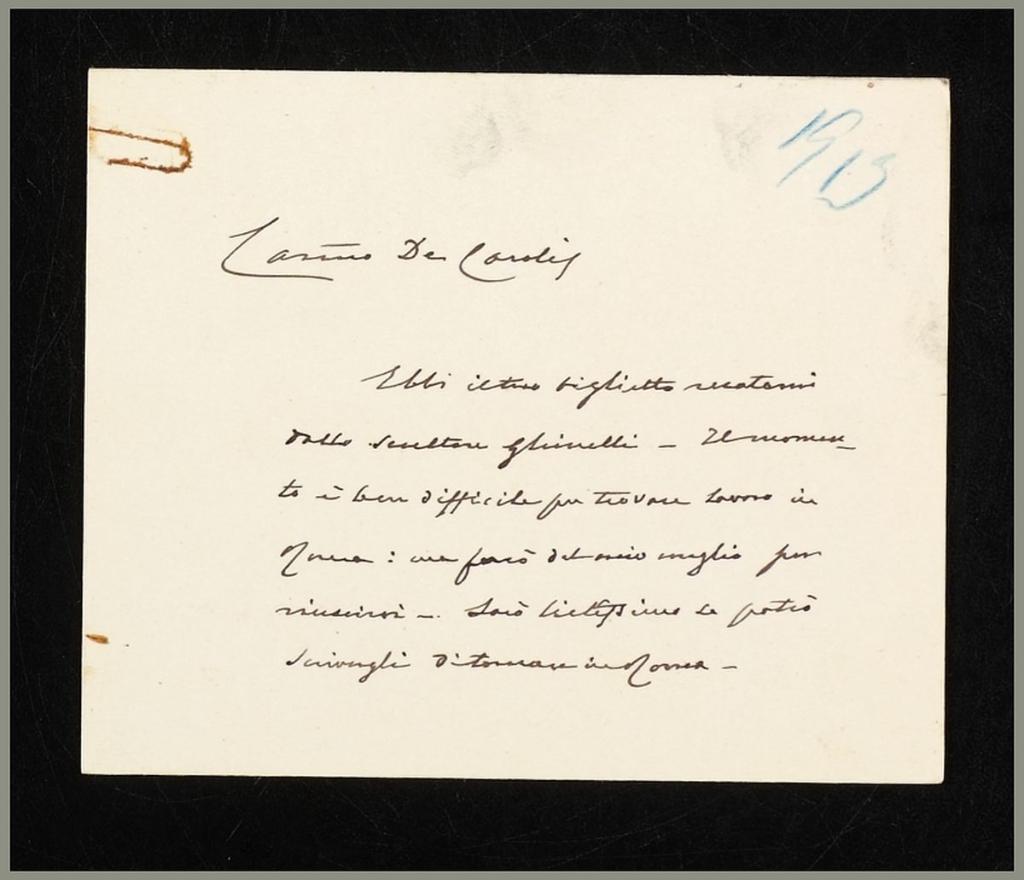 1913
Carino De Carolis
Ebbi il tuo biglietto recatomi
dallo scultore Ghinelli – Il momen-
to è ben difficile per trovare lavoro in
Roma: ma farò del mio meglio per
riuscirvi –. Sarò lietissimo se potrò
scrivergli di tornare in Roma –